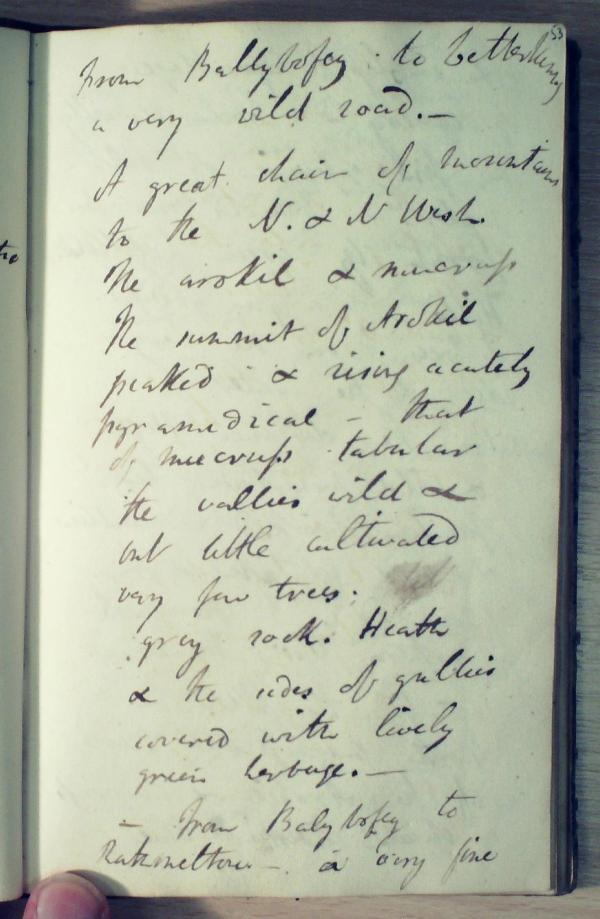 53
from Ballybofey to Letterkenny
a very wild road. —
A great chain of mountains
to the N. & N West.
The arokil & mucrufs
The summit of Arokil
peaked & rising acutely
pyramedical — that
of mucrufs tabular
the vallies wild &
but little cultivated
very few trees.
grey rock. Heath
& the sides of gullies
covered with lively
green herbage. —
— From Balybofey to
Rathmeltown — a very fine